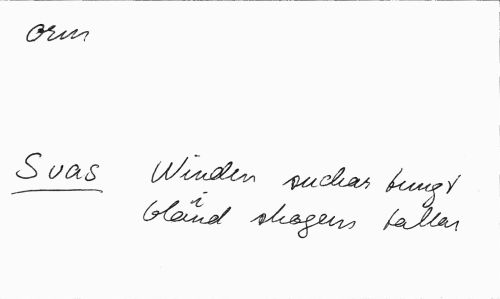 orm
Svas Winden suckar tungt
i
bland skogens tallar